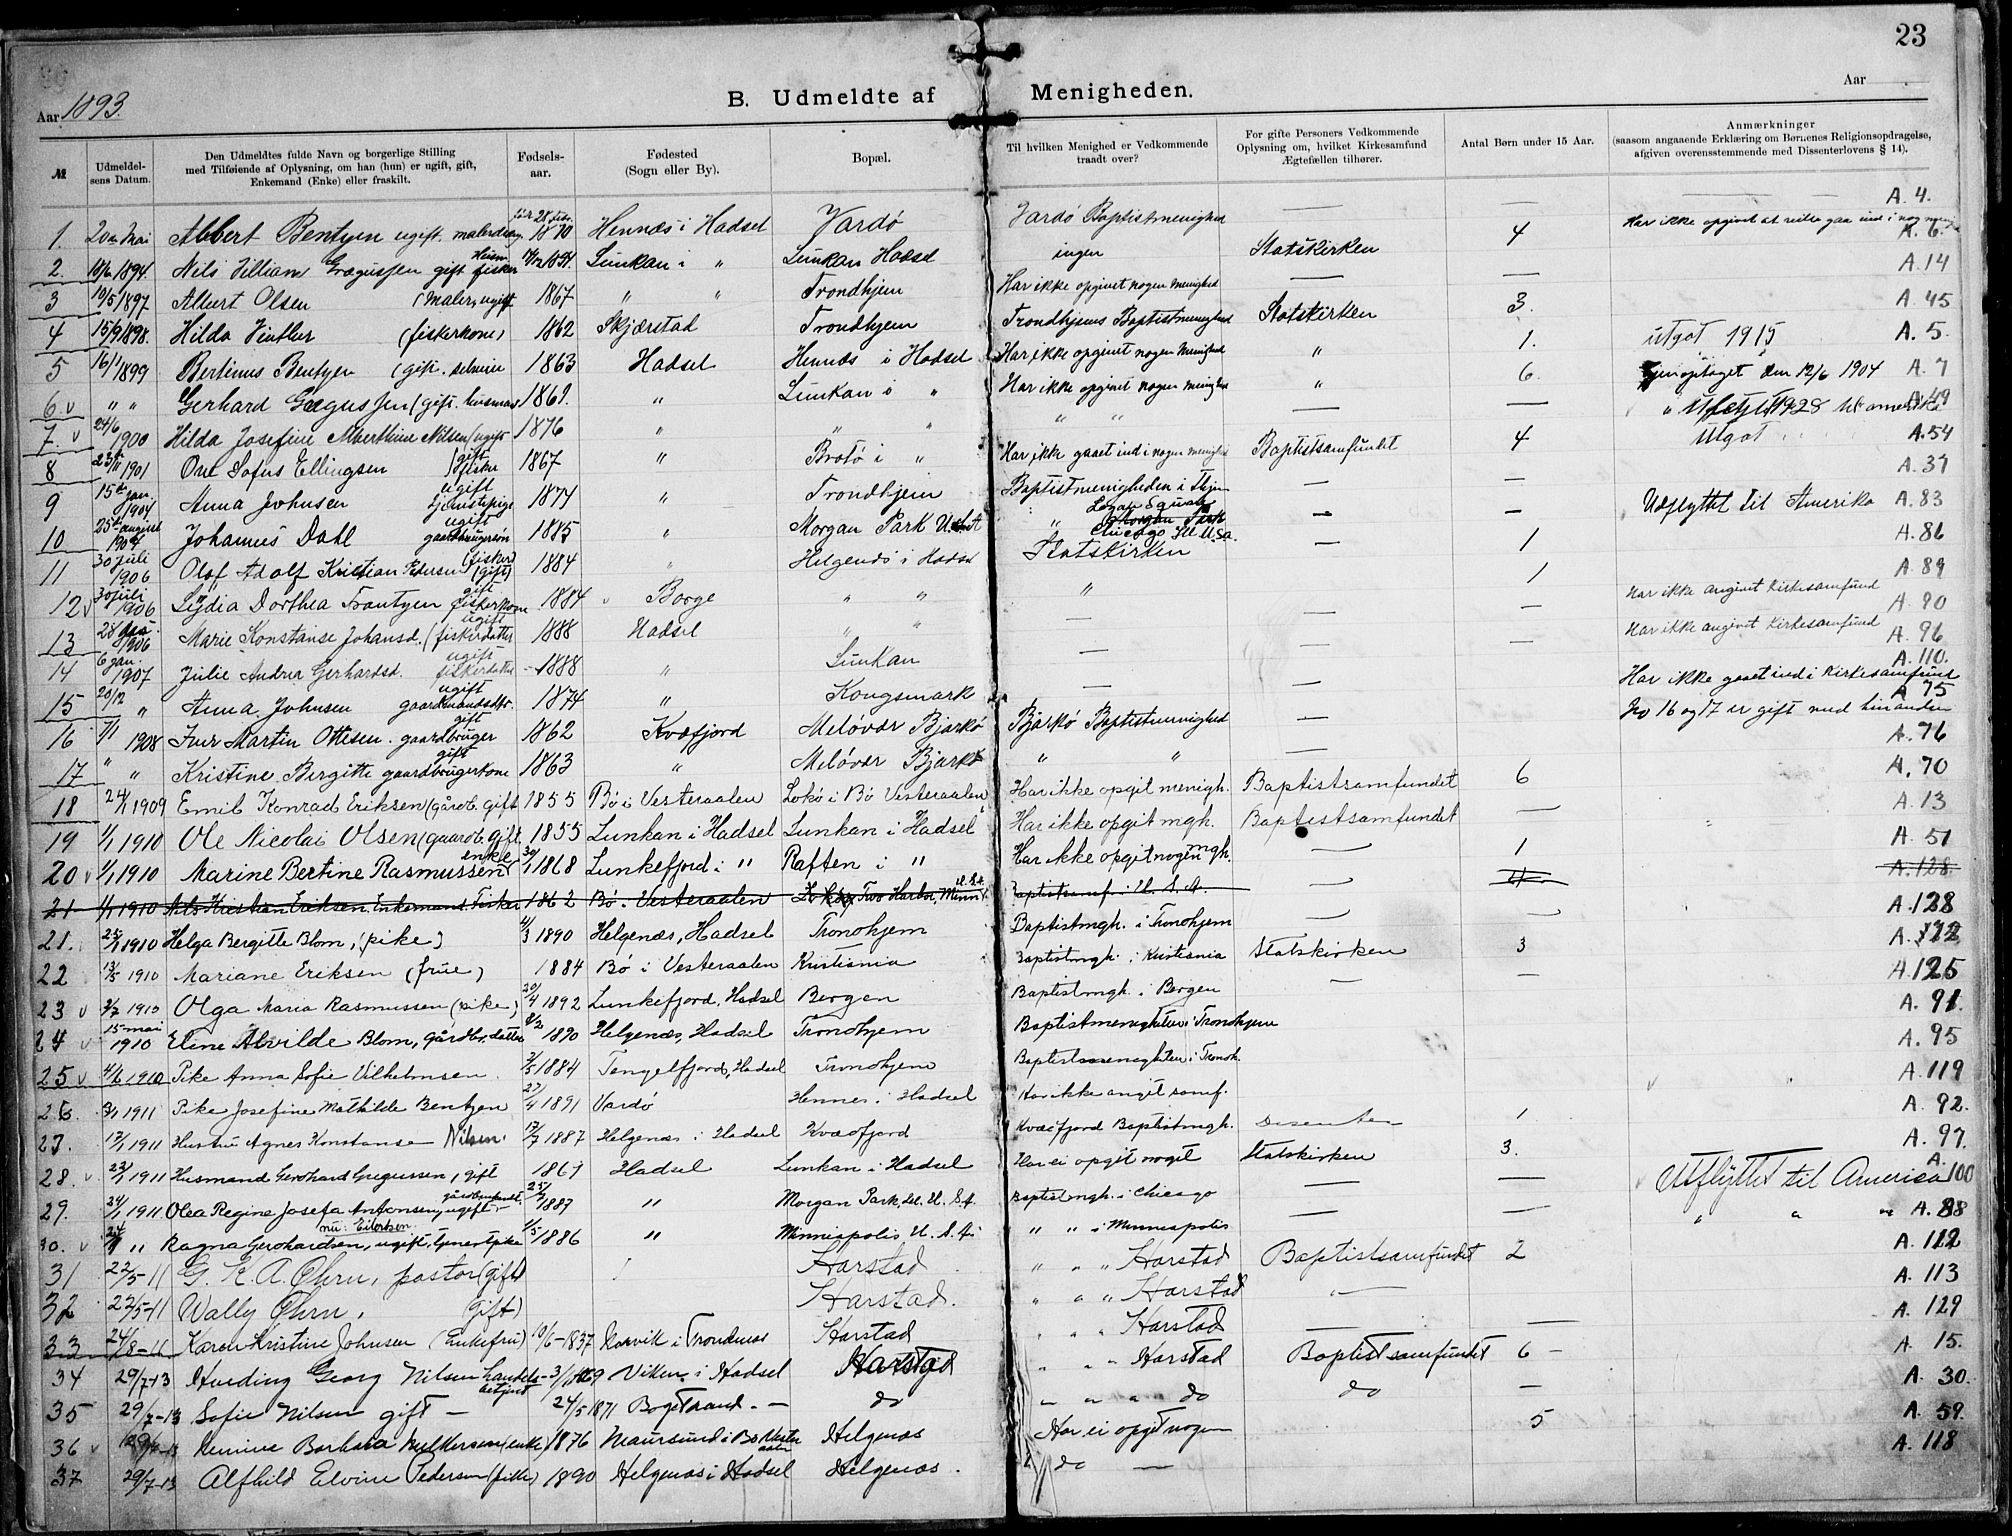 23
Aar 1893.
B. Udmeldte af Menigheden.
Aar
№
Udmeldelsens Datum.
Den Udmeldtes fulde Navn og borgerlige Stilling med Tilføiende af Oplysning, om han (hun) er ugift, gift, Enkemand (Enke) eller fraskilt.
Fødselsaar.
Fødested (Sogn eller By).
Bopæl.
Til hvilken Menighed er Vedkommende traadt over?
For gifte Personers Vedkommende Oplysning om, hvilket Kirkesamfund Ægtefællen tilhører.
Antal Børn under 15 Aar.
Anmærkninger (saasom angaaende Erklæring om Børnenes Religionsopdragelse, afgiven overensstemmende med Dissenterlovens § 14).
1. 20de Mai Albert Bentzen ugift. 1870 Hennæs i Hadsel Vardø Vardø Baptistmenighed — — A. 4.
2. 1894. Nils Villiam Grægussen gift fisker Lunkan i " Lunkan Hadsel ingen Statskirken 4 Har ikke opgivet at ville gaa ind i nogen A. 6
3 19/5 1897 Albert Olsen (maler, ugift 1867 " " Trondhjem Har ikke opgivet nogen menighed — — A. 14
4 15/9 1898. Hilda Vinther (fiskerkone) 1862 Skjærstad Trondhjem Trondhjems Baptistmenighed Statskirken 3. A. 45
5 16/1 1899 Bertinus Bentzen (gift. 1863 Hadsel Hennæs i Hadsel Har ikke opgivet nogen Menighed " 1. utgåt 1915 A. 5.
6. v " " Gerhard Gægussen (gift. husmand 1861. " Lunkan i " Har ikke opgivet nogen menighed " 6. Gjenoptaget den 12/6 1904 A. 7
7. v 24/6 1900 Hilda Josefine Alberthine Nilsen (ugift 1876 " " " " " — — 1928 til amerika A. 49
8 1901 Ove Sofus Ellingsen (gift fisker 1867 " Brotø i " Har ikke gaaet ind i nogen menighed Baptistsamfundet 4 Utgåt A. 54
9 15de jan. 1904 Anna Johnsen ugift tjenestepige 1874 " Trondhjem Baptistmenigheden i Thjem — — A. 37
10 25de august 1904 Johannes Dahl ugift gaardbrugersøn 1885 " Morgan Park Logan Square Chicago Ill U.S.A. — — Udflyttet til Amerika A. 83
11 30 juli 1906 Olaf Adolf Kristian Pedersen (fisker) (gift) 1884 " Helgenæs i Hadsel Statskirken — 1 A. 86
12 v 30 juli 1906 Lydia Dorthea Frantzen gift fiskerkone 1884 Borge " " " 1 A. 89
13 1906 Marie Konstanse Johansd. ugift (fiskerdatter 1888 Hadsel " " — — — Har ikke angivet Kirkesamfund A. 90
14 6 jan. 1907 Julie Andrea Gerhardsd. ugift fiskerdatter 1888 " Lunkan — — — Har ikke angivet Kirkesamfund A. 96
15 20/12 " Anna Johnsen ugift gaardmandsdtr. 1874 " Kongsmark — — Har ikke gaaet ind i Kirkesamfund A. 110.
16 7/1 1908 Iver Martin Ottesen gaardbruger gift 1862 Kvæfjord Meløvær Bjarkø Bjarkø Baptistmenighed — No 16 og 17 er gift med hinanden A 75
17 " " Kristine Bergitte gaardbrugerkone gift 1863 " Meløvær Bjarkø " " — A. 76
18 24/1 1909 Emil Konrad Eriksen (gårdb. gift 1855 Bø i Vesteraalen Lokø i Bø Vesteraalen Har ikke opgit menigh. Baptistsamfundet 6 A. 70
19 1/1 1910 Ole Nicolai Olsen (gaardb. gift. 1855 Lunkan i Hadsel Lunkan i Hadsel Har ikke opgit mgh. Baptistsamfundet — A. 13
20 v 1/1 1910 Marine Bertine Rasmussen enke 1868 Lunkefjord i " Raften i " Har ikke opgit nogen mgh. — 1 A. 51
21 1/1 1910 Nils Kristian Eriksen, Enkemand. Fisker 1862 Bø i Vesteraalen Two Harbor, Minn. U.S.A. Baptistsamf. i U. S. A. — A. 128
21. 1910 Helga Bergitte Blom, (pike) 4/3 1890 Helgenæs, Hadsel Trondhjem Baptistmgh. i Trondhjem — — A. 128
22 13/5 1910 Mariane Eriksen (frue) 1884 Bø i Vesteraalen Kristiania Baptistmgh. i Kristiania Statskirken 3 A. 122
23 v 1910 Olga Maria Rasmussen (pike) 20/4 1892 Lunkefjord, Hadsel Bergen Baptistmgh. i Bergen — — A. 125
24 v 15 mai 1910 Eline Alvilde Blom, gårdbr. datter 1890 Helgenæs, Hadsel Trondhjem Baptistmenigheten i Trondhjem A. 91.
25 v 1910 Pike Anna Sofie Vilhelmsen 1884 Tengelfjord, Hadsel Trondhjem Baptistmenigheten i Trondh. A. 95
26. 1911 Pike Josefine Mathilde Bentzen 27/4 1891 Vardø Hennes i Hadsel Har ikke angit samf. A. 119
27. 1911 Hustru Agnes Konstanse Nilsen 1887 Helgenæs i Hadsel Kvæfjord Kvæfjord Baptistmgh. Dissenter 1 A. 92.
28. v 1911 Husmand Gerhard Gregussen, gift 1861 Hadsel Lunkan i Hadsel Har ei opgit noget Statskirken 3. A. 97.
29. 24/1 1911 Olea Regine Josefa Antonsen, ugift 1887 " Morgan Park, Ill. U. S. A. Baptistmgh. i Chicago — — Utflyttet til America A. 100
30. v " Ragna Gerhardsen, nu: Eilertsen ugift, tjenestpike 1/5 1886 " Minneapolis U. S. A. " " i Minneapolis — — " " " A. 88
31 22/5-11 G. K. A. Øhrn, pastor (gift) Harstad " " " Harstad Baptistsamfundet 2 A. 112
32 22/5-11 Wally Øhrn, (gift) Harstad. " " " Harstad " — A. 113
33 24/8-11 Karen Kristine Johnsen (Enkefru) 10/6-1837 i Trondenæs Harstad " " " Harstad — — A. 129
34 29/7-13 Harding Georg Nilsen handelsbetjent Viken i Hadsel Harstad " " " Harstad Baptistsamfundet 6 — A. 15.
35 29/7-13 Sofie Nilsen gift — 24/5 1871 Bogstrand do " " " do do — A. 30.
36 v Barbara (enke) 1876 Maursund i Bø Vesteraalen Helgenæs Har ei opgit nogen 5 A. 59.
37 29/7-13 Alfhild Elvine Pedersen (pike) 1890 Helgenæs i Hadsel Helgenæs. do — A. 118